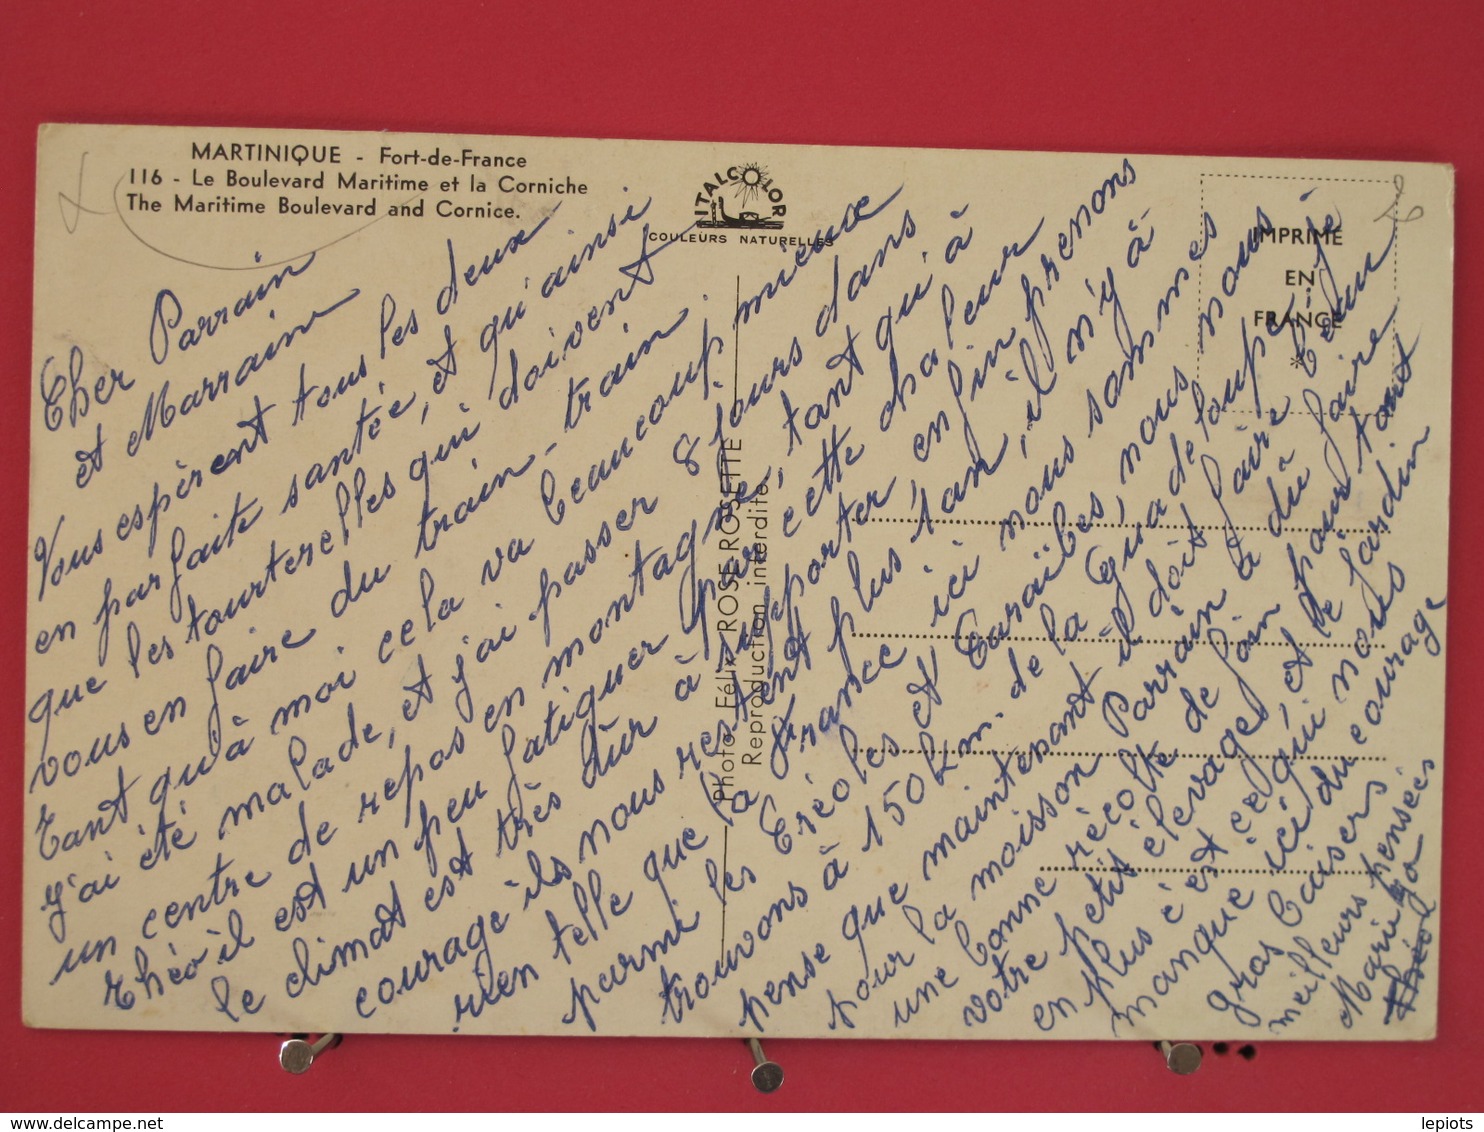 MARTINIQUE - Fort-de-France
116 - Le Boulevard Maritime et la Corniche
The Maritime Boulevard and Cornice.
ITALCOLOR
COULEURS NATURELLES
IMPRIMÉ
EN
FRANCE
*
Photo Félix ROSE-ROSETTE
Reproduction interdite
Cher Parrain
et Marraine
Vous espèrent tous les deux
en parfaite santée, et qu'ainsi
que les tourterelles qui doivent
vous en faire du train-train.
Tant qu'à moi cela va beaucoup mieux
j'ai été malade, et j'ai passer 8 jours dans
un centre de repos en montagne, tant qui à
Théo il est un peu fatiguer par cette chaleur
le climat est très dûr à supporter, enfin prenons
courage ils nous restent plus 1 an, il n'y à
rien telle que la France, ici nous sommes
parmi les Créoles et Caraïbes, nous nous
trouvons à 150 km. de la Guadeloupe. je
pense que maintenant il doit faire beau
pour la moisson Parrain à dû faire
une bonne récolte de foin pour tout
votre petit élevage, et le jardin
en plus c'est ce qui nous
manque ici du courage
gros baisers
meilleurs pensées
Marie yo
Théo
delcampe.net
lepiots